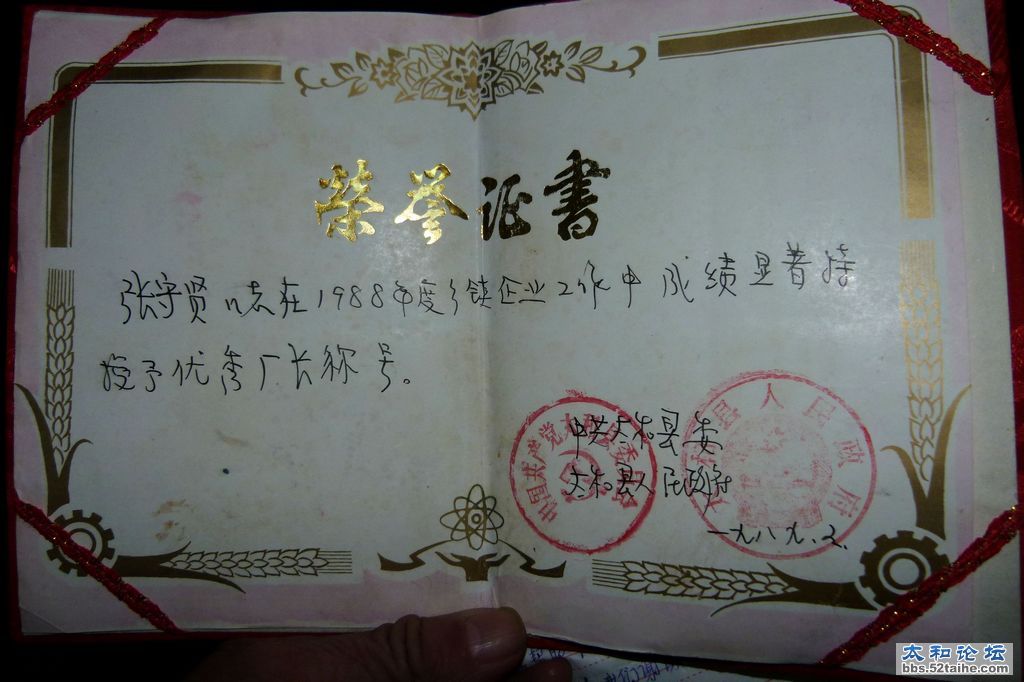 荣誉证书
张守贤同志在1988年度乡镇企业工作中成绩显著特
授予优秀厂长称号。
中共太和县委
太和县人民政府
一九八九.2.
中国共产党太和县委员会
太和县人民政府
太和论坛
bbs.52taihe.com